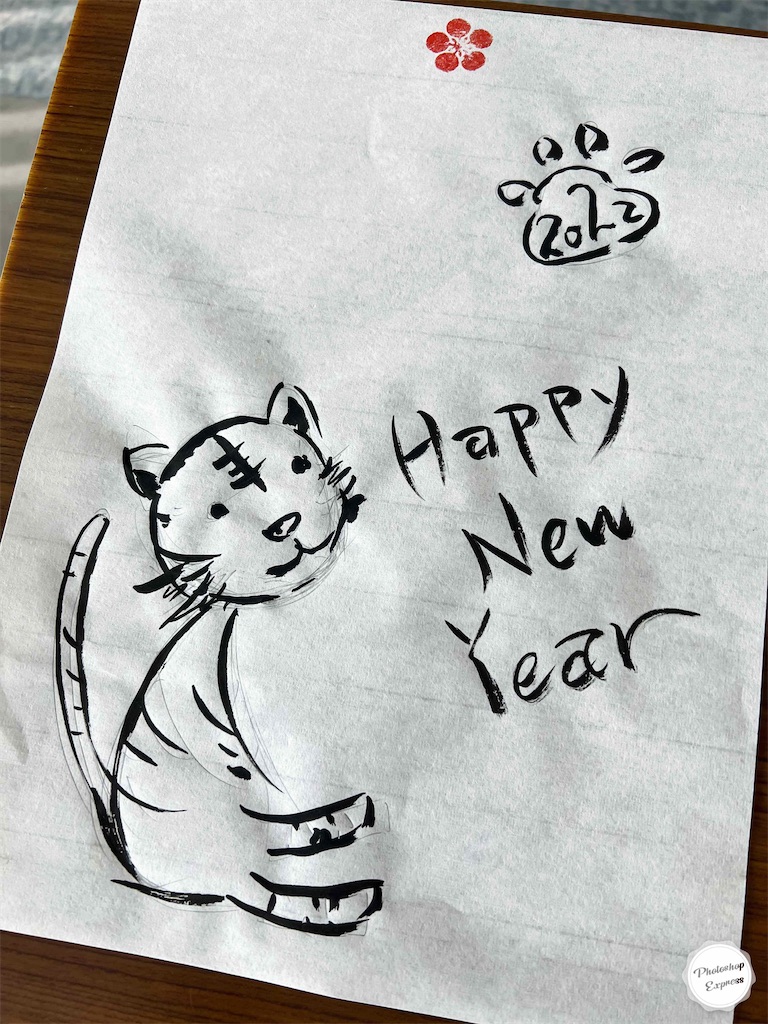 2022
Happy
New
Year
Photoshop
Express